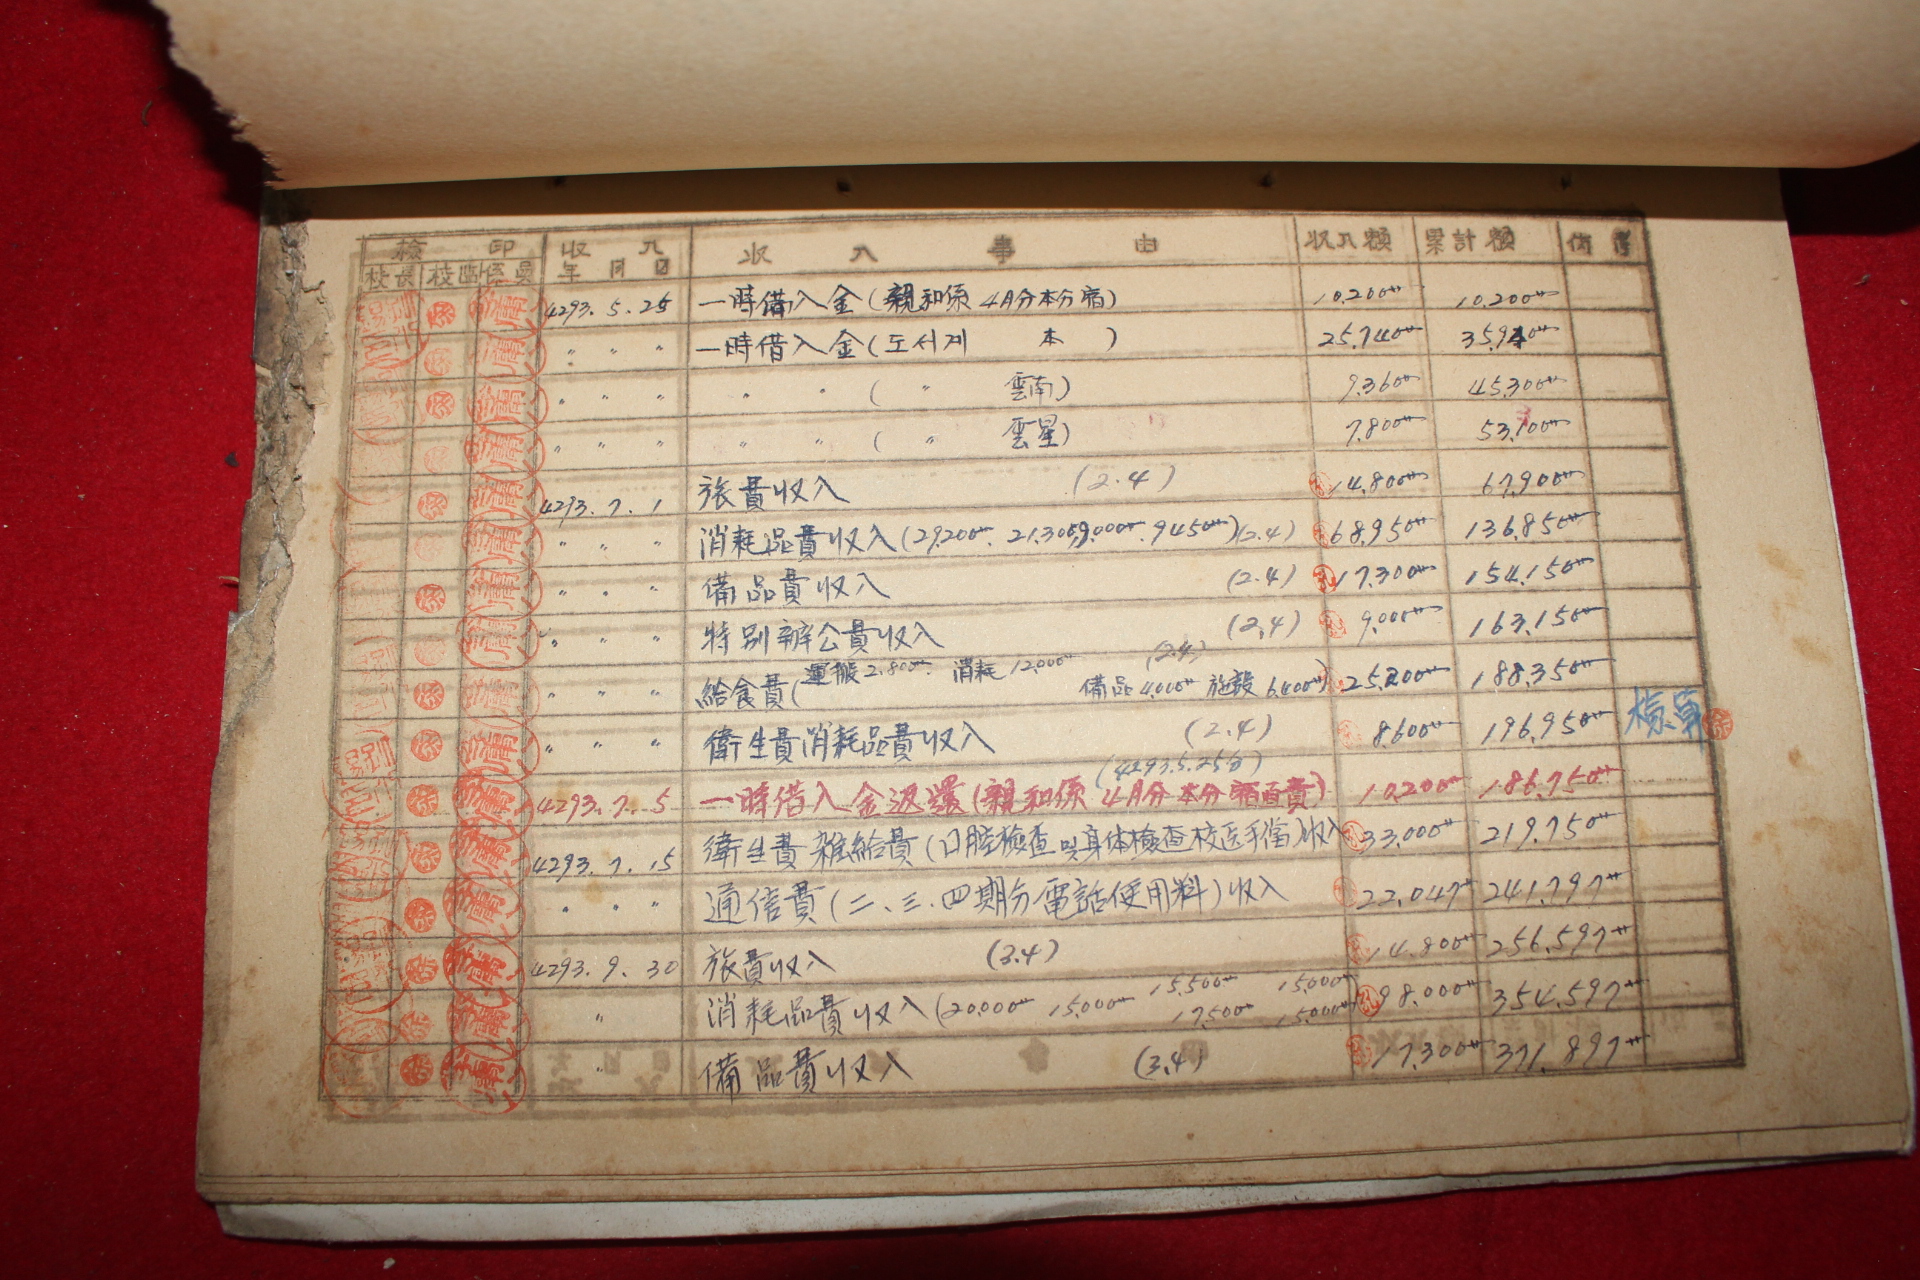 檢 印 收 入 收 入 事 由 收入額 累計額 備 考
校長 校監 係員 年 月 日
4293. 5. 25 一時借入金(親和係 4月分本分宿) 10.200 10.200
〃 〃 〃 一時借入金(도서계 本 ) 25.740 35.940
〃 〃 〃 〃 〃 ( 〃 雲南) 9.360 45.300
〃 〃 〃 〃 〃 ( 〃 雲星) 7.800 53.100
4293. 7. 1 旅費收入 (2.4) 14.800 67.900
〃 〃 〃 消耗品費收入(29.200 21.300 9.000 9450)(2.4) 68.950 136.850
〃 〃 〃 備品費收入 (2.4) 17.300 154.150
〃 〃 〃 特別辦公費收入 (2.4) 9.000 163.150
〃 〃 〃 給食費(運搬 2.800 消耗 12.000 備品 4.000 施設 6.400) (2.4) 25.200 188.350
〃 〃 〃 衛生費消耗品費收入 (2.4) 8.600 196.950 檢算
(4293.5.25分)
4293. 7. 5 一時借入金返還(親和係 4月分本分宿直費) 10.200 186.750
4293. 7. 15 衛生費雜給費(口腔檢査및身体檢査校医手當)收入 33.000 219.750
〃 〃 〃 通信費(二、三、四期分電話使用料)收入 22.047 241.797
4293. 9. 30 旅費收入 (3.4) 14.800 256.597
〃 消耗品費收入(20.000 15.000 15.500 17.500 15.000 15.000) 98.000 354.597
〃 備品費收入 (3.4) 17.300 371.897